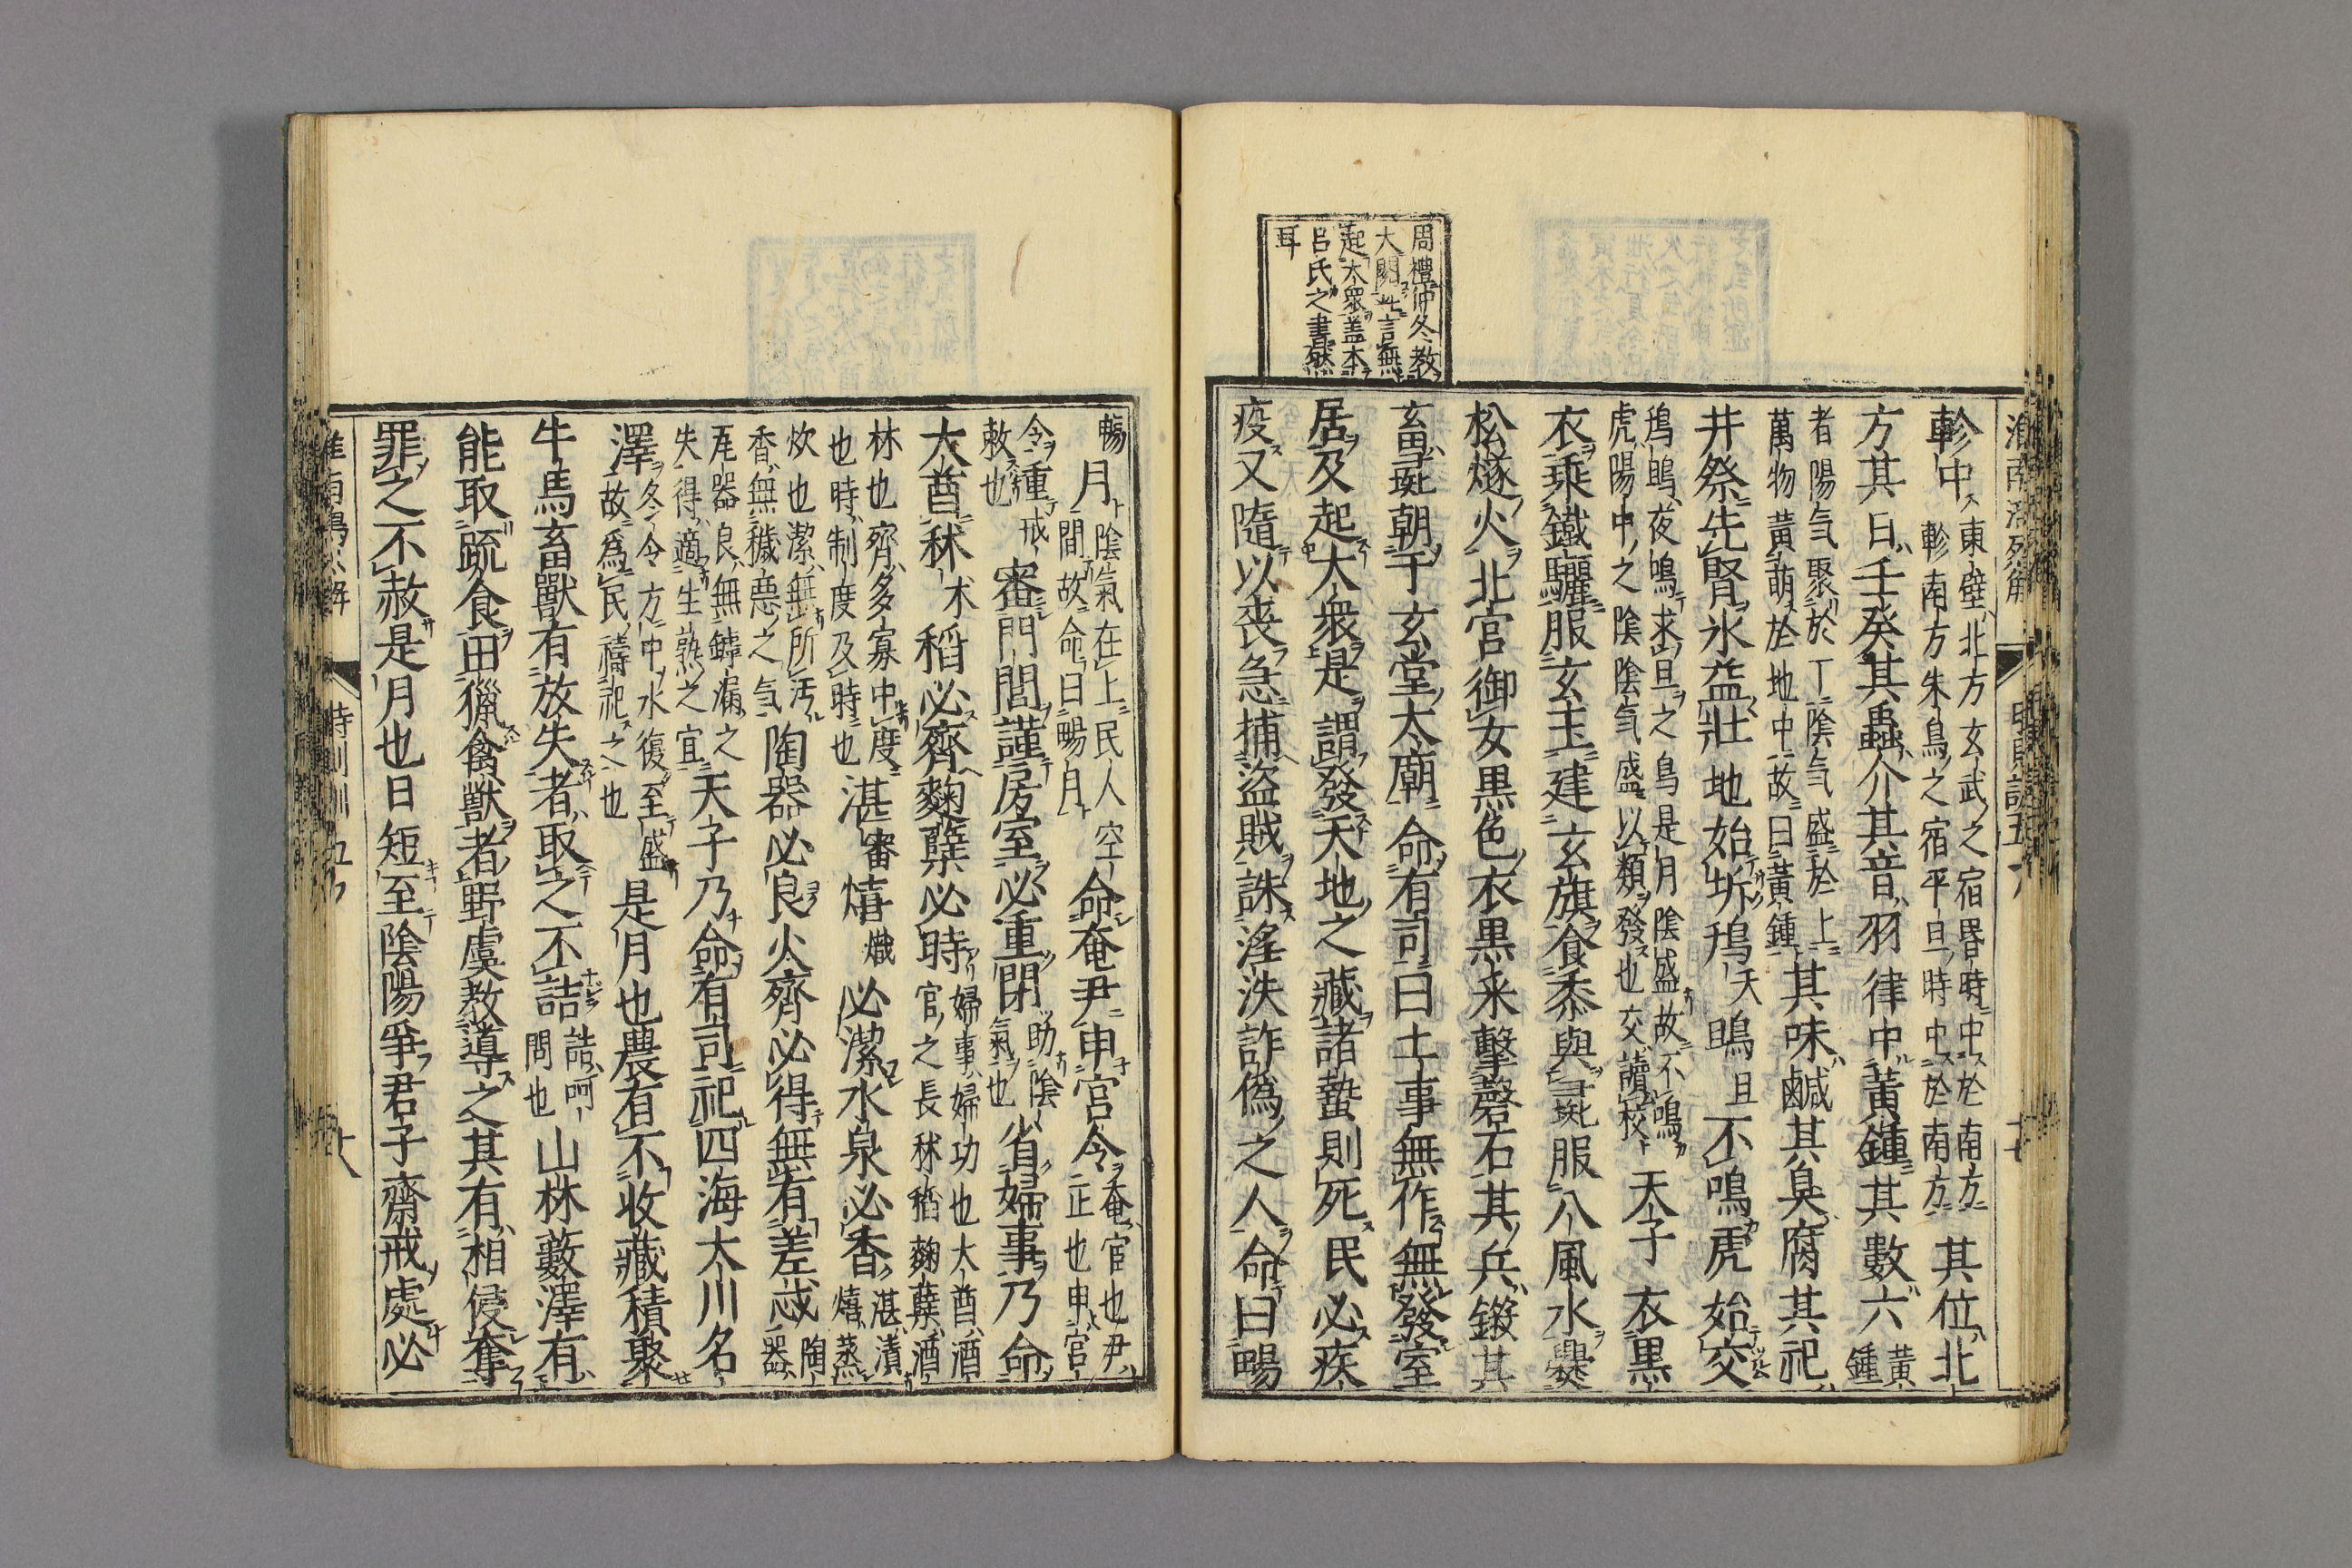 周禮仲冬教
大閱此言無
起大衆盖本
呂氏之書然
耳
軫中東壁北方玄武之宿昬時中於南方
軫南方朱鳥之宿平旦時中於南方其位北
方其日壬癸其蟲介其音羽律中黃鍾其數六黃
鍾
者陽气聚於下陰气盛於上
萬物黃萌於地中故曰黃鍾其味鹹其臭腐其祀
井祭先腎氷益壯地始坼鳱天鴠旦不鳴虎始交
鳱鴠夜鳴求旦之鳥是月陰盛故不鳴
虎陽中之陰陰气盛以類發也交讀校天子衣黒
衣乘鐵驪服玄玉建玄旗食黍與彘服八風水爨
松燧火北宮御女黒色衣黒采擊磬石其兵鎩其
畜彘朝于玄堂太廟命有司曰土事無作無發室
居及起大衆是謂發天地之藏諸蟄則死民必疾
疫又隨以喪急捕盜賊誅淫泆詐偽之人命曰暢
暢月陰氣在上民人空
間故命曰暢月命奄尹申宮令奄官也尹
正也申宮
令重戒
敕也審門閭謹房室必重閉助陰
氣也省婦事乃命
大酋秫术稻必齊麴糵必時婦事婦功也大酋酒
官之長秫稻麴糵酒
林也齊多寡中度
也時制度及時也湛審熺熾必潔水泉必香湛漬
熺蒸
炊也潔無所汚
香無穢惡之气陶器必良火齊必得無有差忒陶
器
瓦器良無罅漏之
失得適生熟之宜天子乃命有司祀四海大川名
澤冬令方中水復至盛
故爲民禱祀之也是月也農有不收藏積聚
牛馬畜獸有放失者取之不詰詰呵
問也山林藪澤有
能取疏食田獵禽獸者野虞教導之其有相侵奪
罪之不赦是月也日短至陰陽爭君子齋戒處必
時則訓